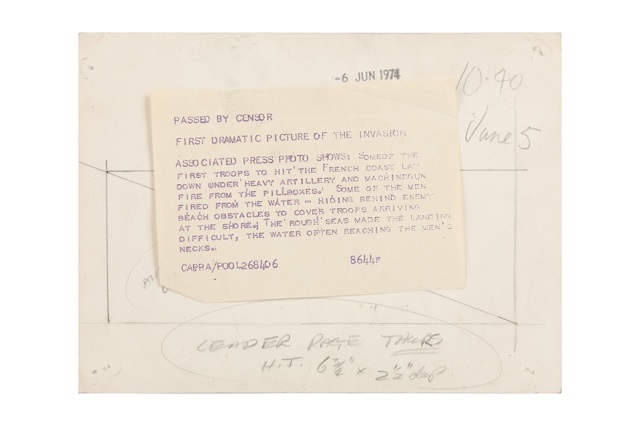 -6 JUN 1974
10.40
June 5
PASSED BY CENSOR
FIRST DRAMATIC PICTURE OF THE INVASION
ASSOCIATED PRESS PHOTO SHOWS: SOMEOF THE
FIRST TROOPS TO HIT THE FRENCH COAST LAY
DOWN UNDER HEAVY ARTILLERY AND MACHINEGUN
FIRE FROM THE PILLBOXES. SOME OF THE MEN
FIRED FROM THE WATER - HIDING BEHIND ENEMY
BEACH OBSTACLES TO COVER TROOPS ARRIVING
AT THE SHORE. THE ROUGH SEAS MADE THE LANDING
DIFFICULT, THE WATER OFTEN REACHING THE MEN'S
NECKS.
CAPRA/POOL268406 8644F
LEADER PAGE THURS
H.T. 6¾" x 2½" dep